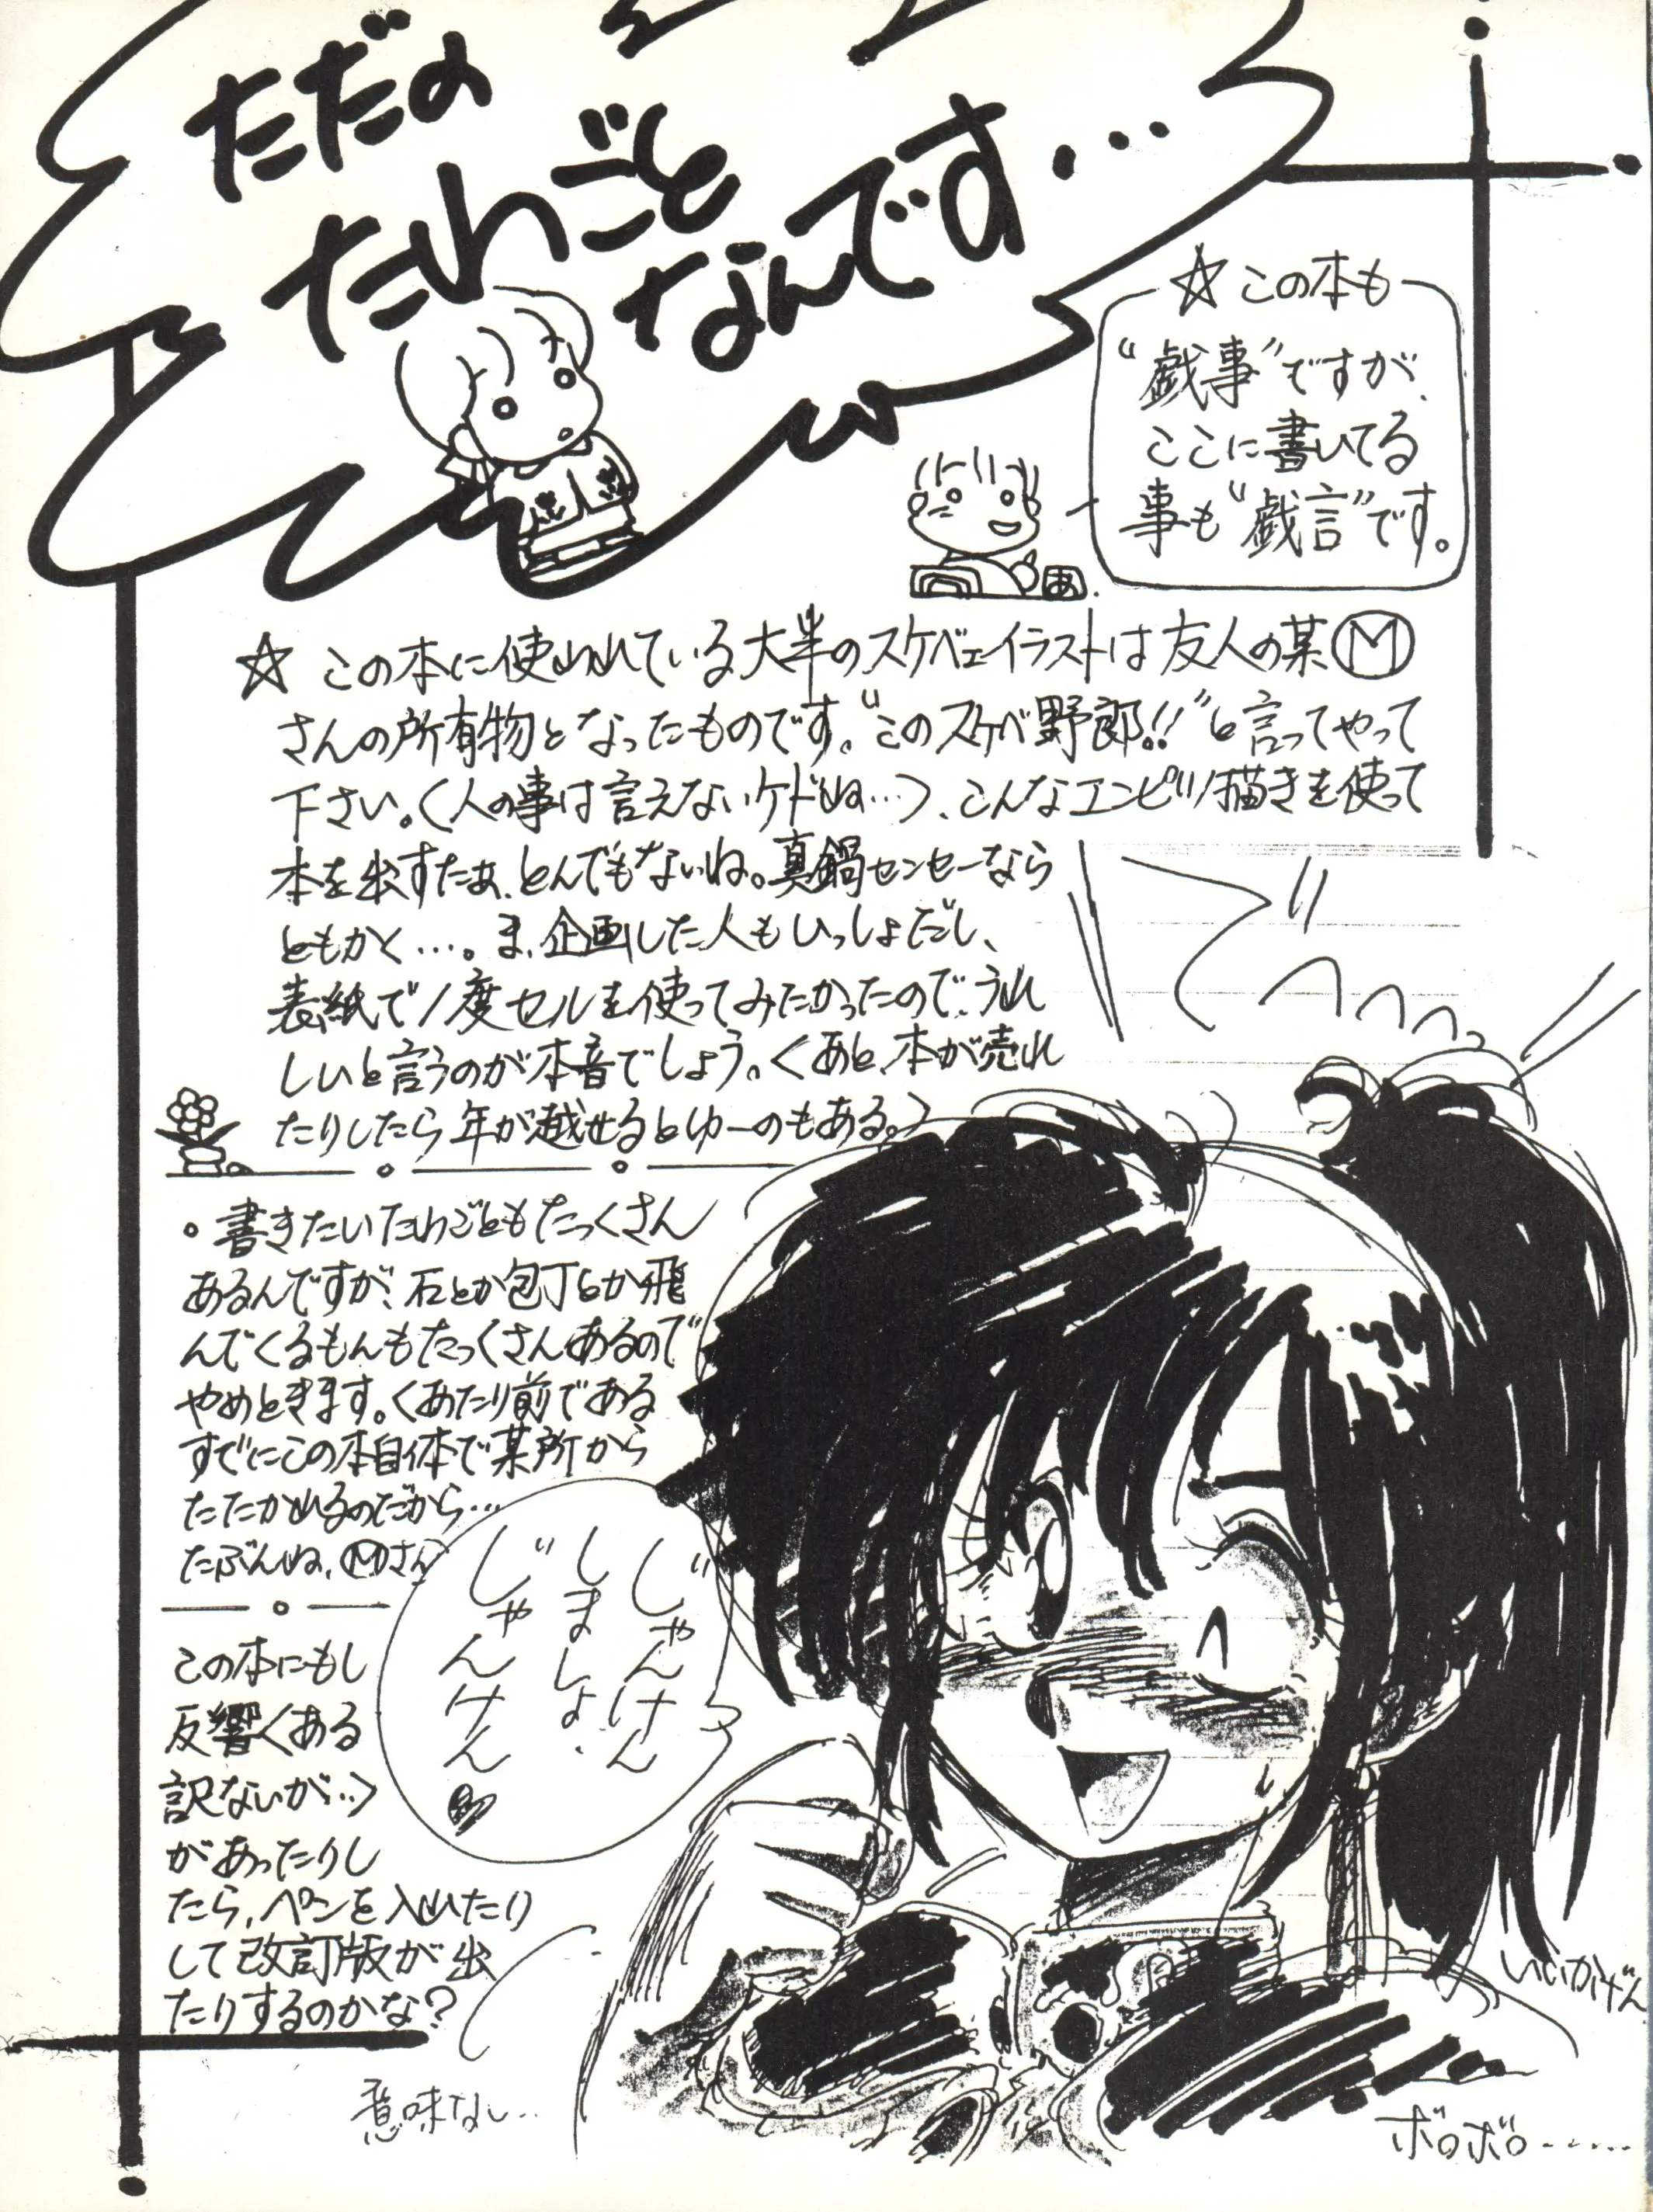 ただの
たわごと
なんです…
☆この本も
“戯事”ですが、
ここに書いてる
事も“戯言”です。
あ
☆この本に使われている大半のスケベェイラストは友人の某Ⓜ
さんの所有物となったものです。“このスケベ野郎!!”と言ってやって
下さい。<人の事は言えないケドね…>、こんなエンピツ描きを使って
本を出すたぁ、とんでもないね。真鍋センセーなら
ともかく…。ま、企画した人もいっしょだし、
表紙で1度セルを使ってみたかったので、うれ
しいと言うのが本音でしょう。<あと、本が売れ
たりしたら年が越せるとゆーのもある。>
。書きたいたわごともたっくさん
あるんですが、石とか包丁とか飛
んでくるもんもたっくさんあるので
やめときます。<あたり前である
すでにこの本自体で某所から
たたかれるのだから…
たぶんね、Ⓜさん
この本にもし
反響<ある
訳ないが…>
があったりし
たら、ペンを入れたり
して改訂版が出
たりするのかな?
じゃんけん
しましょ、
じゃんけん
いいかげん
意味なし…
ボロボロ……